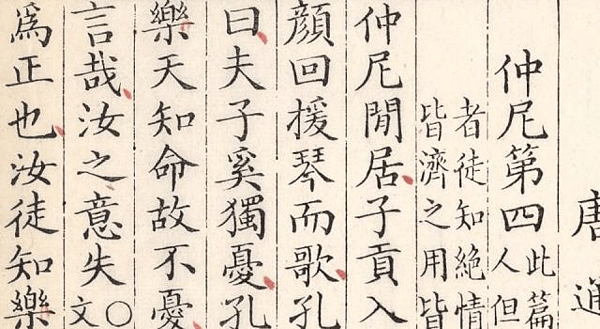 唐通
仲尼第四
此篇
人但
者徒知絶情
皆濟之用皆
仲尼閒居子貢入
顔回援琴而歌孔
曰夫子奚獨憂孔
樂天知命故不憂
言哉汝之意失
○
文
爲正也汝徒知樂